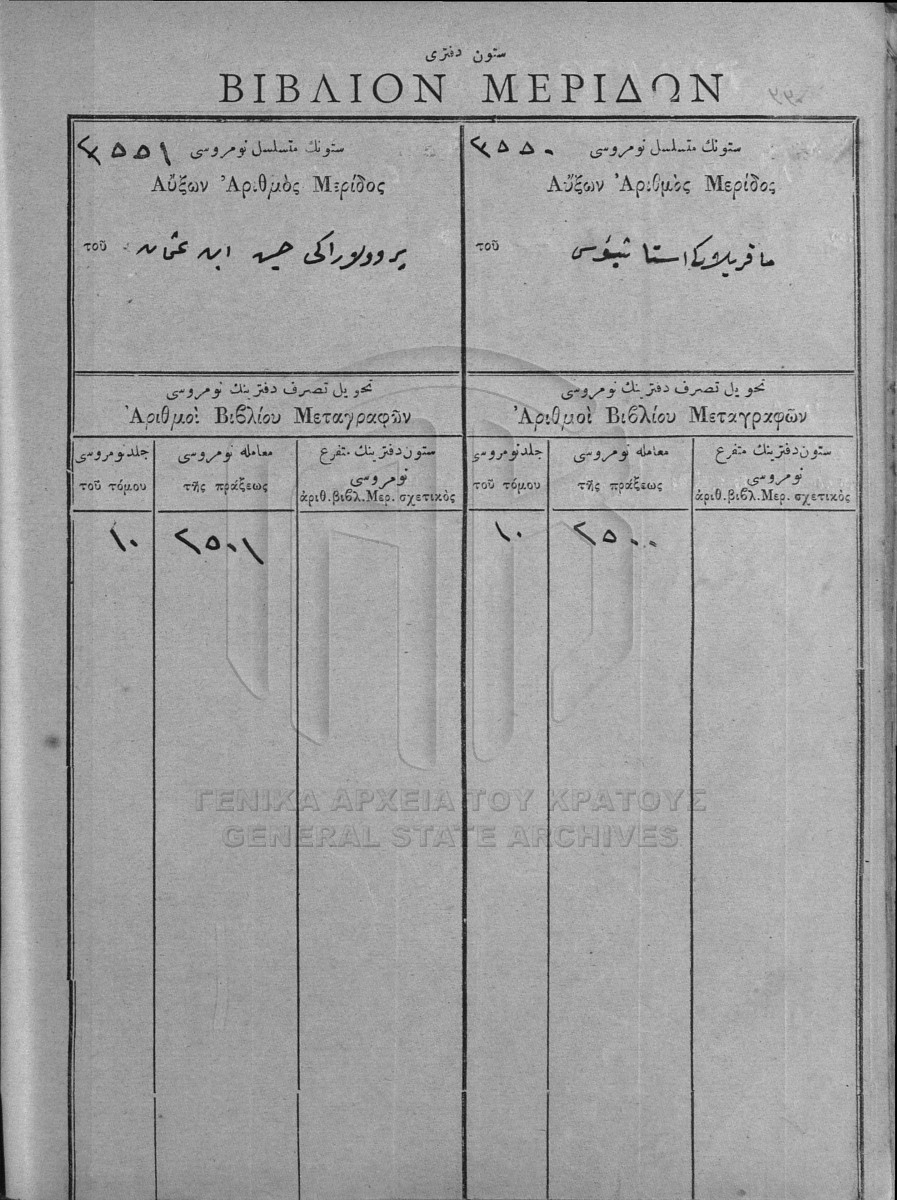 ستون دفتری
ΒΙΒΛΙΟΝ ΜΕΡΙΔΩΝ
ستونك متسلسل نومروسی ٣٥٥٠
Αὔξων Ἀριθμὸς Μερίδος
τοῦ
تحویل تصرف دفترینك نومروسی
Ἀριθμοὶ Βιβλίου Μεταγραφῶν
جلد نومروسی
τοῦ τόμου
معامله نومروسی
τῆς πράξεως
ستون دفترینك متفرع
نومروسی
ἀριθ. βιβλ. Μερ. σχετικὸς
١٠ ٢٥٠٠
ستونك متسلسل نومروسی ٣٥٥١
Αὔξων Ἀριθμὸς Μερίδος
τοῦ حسین ابن عثمان
تحویل تصرف دفترینك نومروسی
Ἀριθμοὶ Βιβλίου Μεταγραφῶν
جلد نومروسی
τοῦ τόμου
معامله نومروسی
τῆς πράξεως
ستون دفترینك متفرع
نومروسی
ἀριθ. βιβλ. Μερ. σχετικὸς
١٠ ٢٥٠١
ΓΕΝΙΚΑ ΑΡΧΕΙΑ ΤΟΥ ΚΡΑΤΟΥΣ
GENERAL STATE ARCHIVES